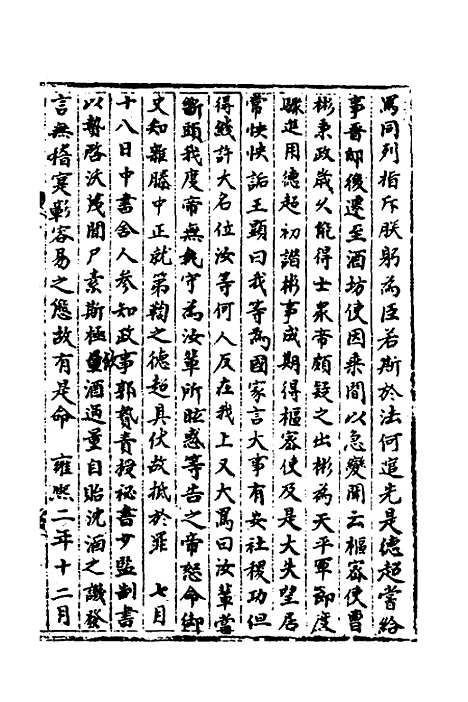 罵同列指斥朕躬為臣若斯於法何逭先是德超嘗給
事晋邸後遷至酒坊使因乘間以急變聞云樞密使曹
彬秉政歲久能得士衆帝頗疑之出彬為天平軍節度
驟進用德超初譛彬事成期得樞密使及是大失望居
常怏怏詬王顕曰我等為國家言大事有安社稷功但
得綫許大名位汝等何人反在我上又大罵曰汝輩當
斷頭我度帝無執守為汝輩所眩惑等告之帝怒命御
史知雜滕中正就第鞫之德超具伏故抵於罪　七月
十八日中書舍人参知政事郭贄責授秘書少監制書
以贄啓沃蔑聞尸素斯極飲酒過量自貽沈湎之譏發
言無稽寔彰容易之態故有是命　雍熙二年十二月